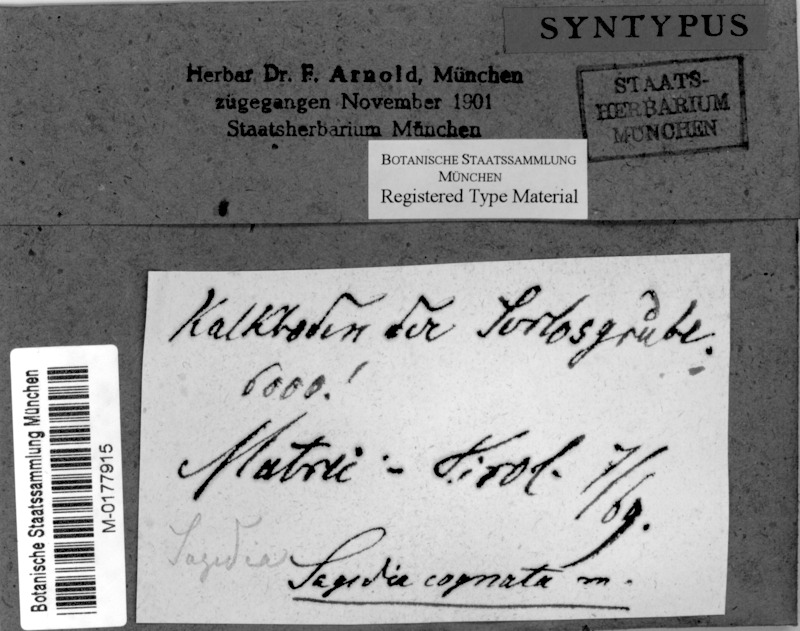 SYNTYPUS
Herbar Dr. F. Arnold, München
zugegangen November 1901
Staatsherbarium München
STAATS-
HERBARIUM
MÜNCHEN
BOTANISCHE STAATSSAMMLUNG
MÜNCHEN
Registered Type Material
Kalkboden der Serlosgrube.
6000.!
Matrei - Tirol. 7/69.
Sagedia
Sagedia cognata m.
Botanische Staatssammlung München
M-0177915